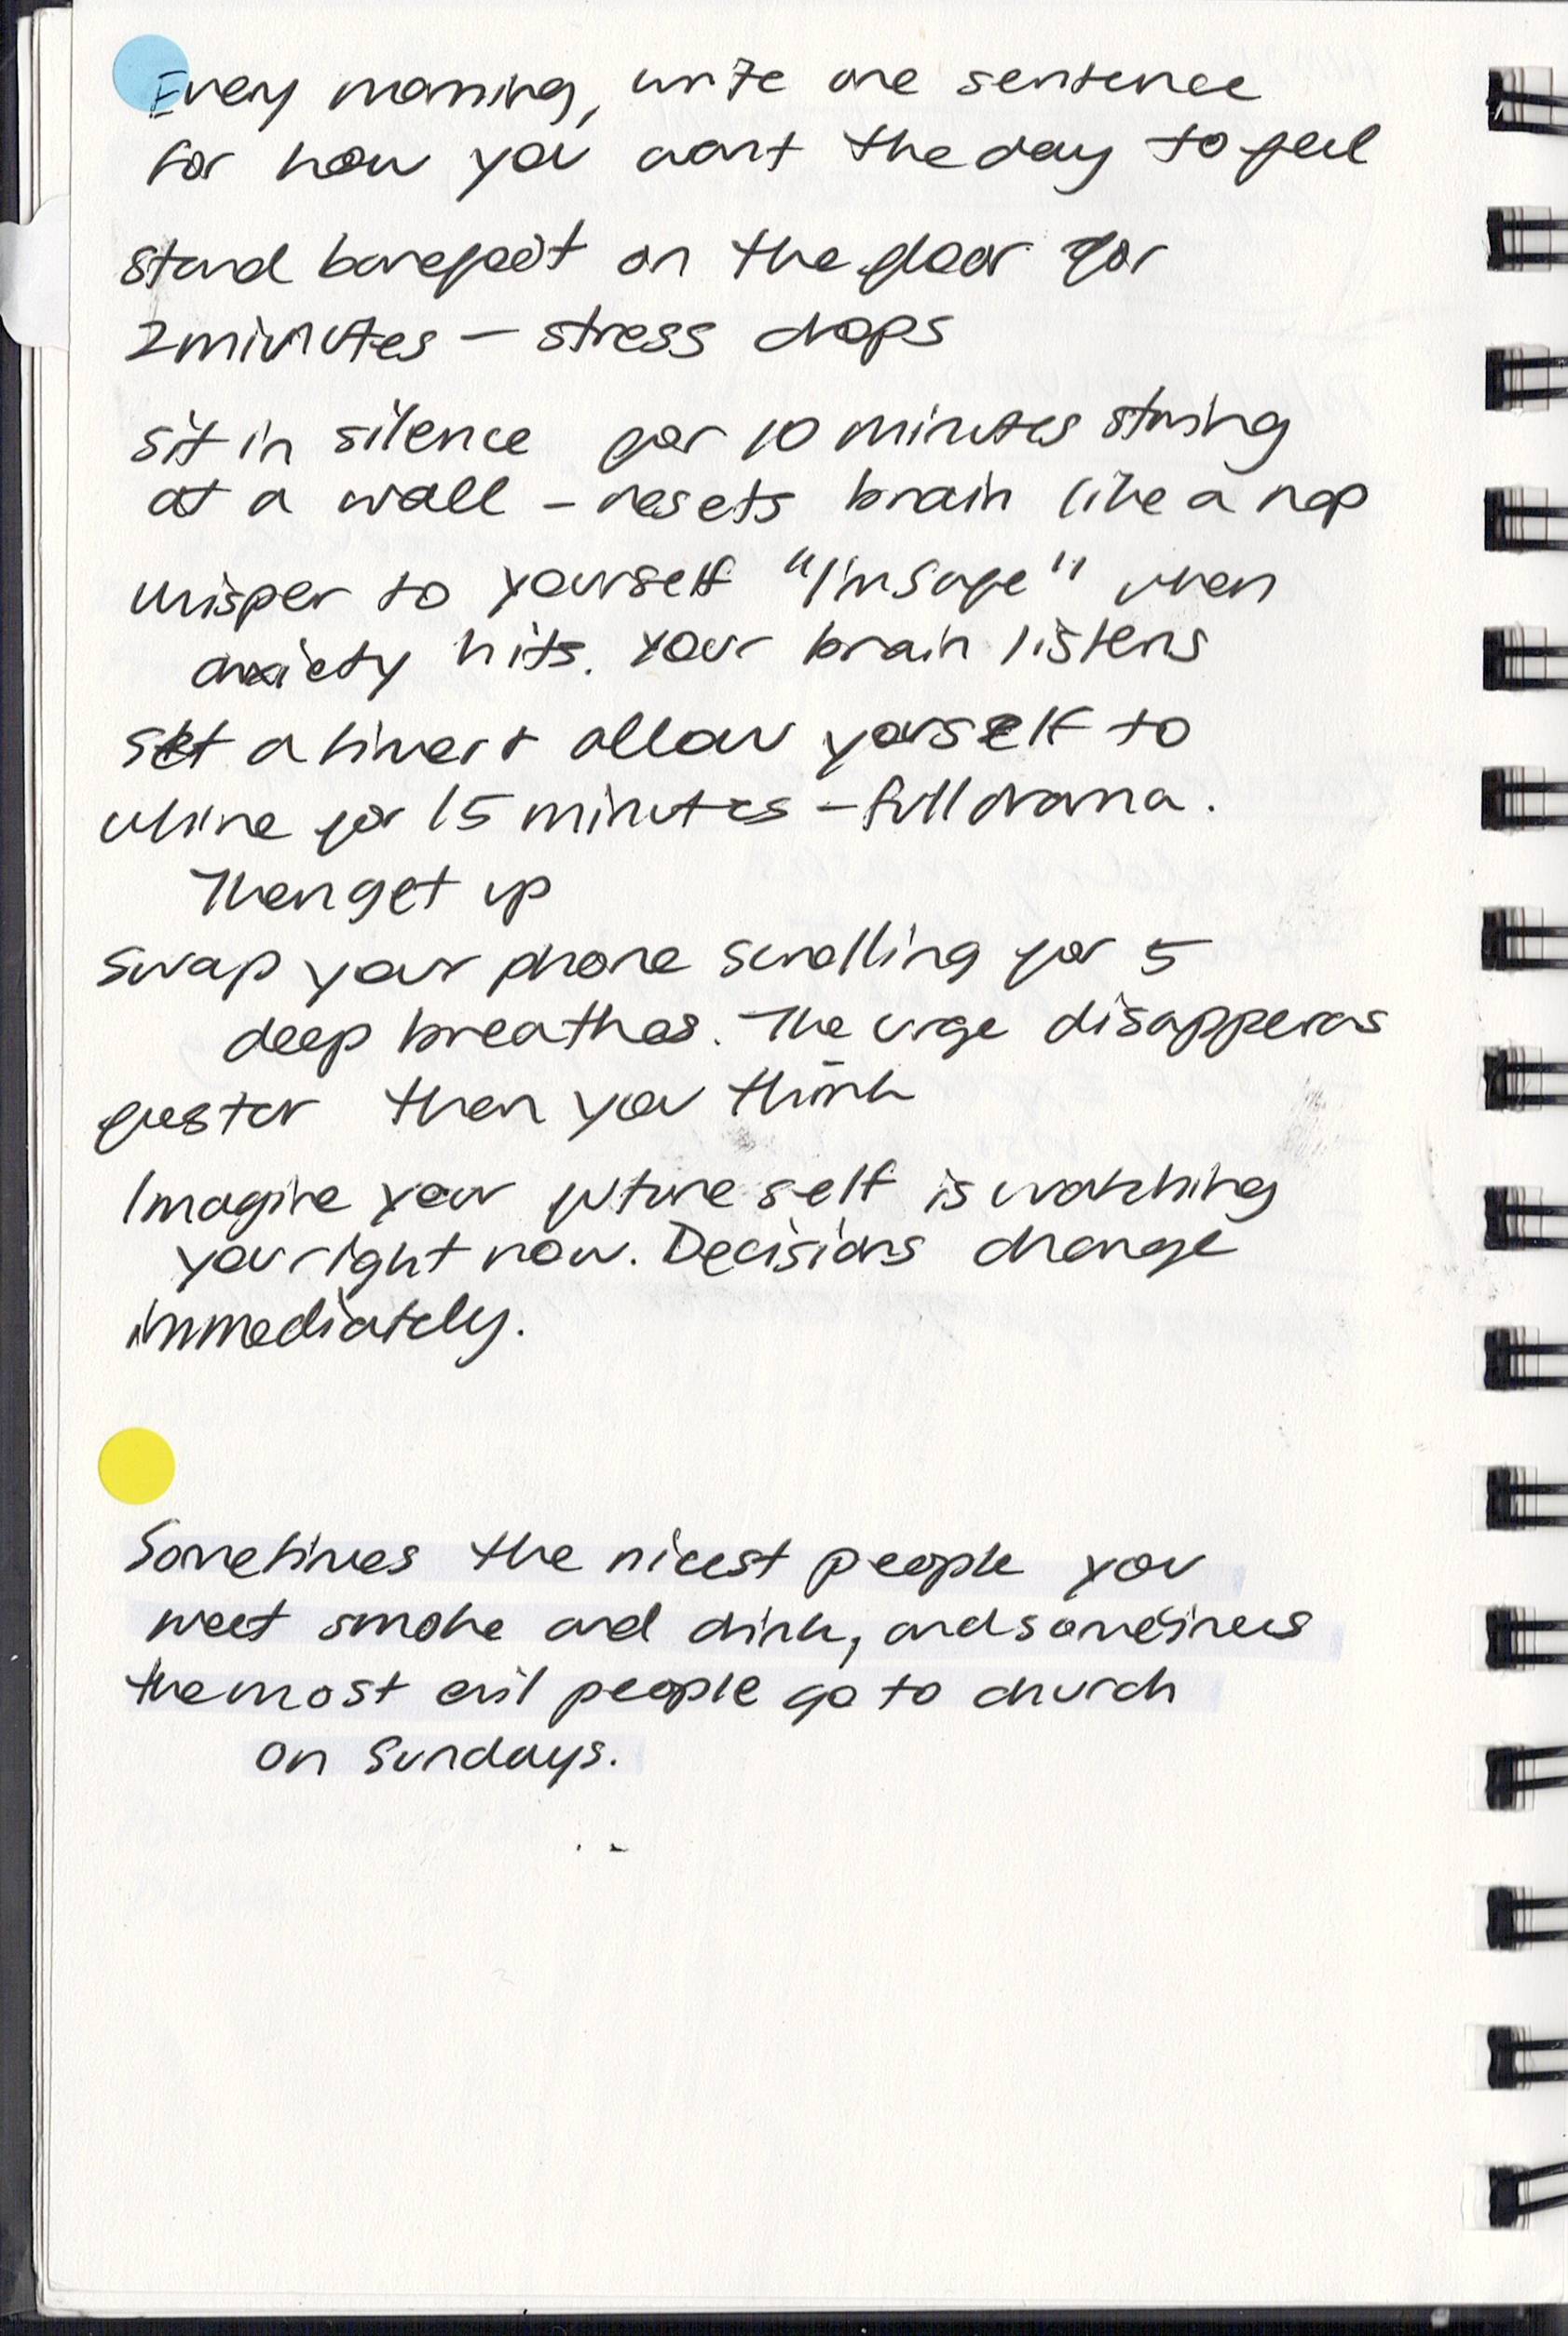 Every morning, write one sentence
for how you want the day to feel
stand barefoot on the floor for
2 minutes – stress drops
sit in silence for 10 minutes staring
at a wall – resets brain like a nap
whisper to yourself "I'm safe" when
anxiety hits. Your brain listens
set a timer + allow yourself to
whine for 15 minutes – full drama.
Then get up
swap your phone scrolling for 5
deep breathes. The urge disappears
faster then you think
Imagine your future self is watching
you right now. Decisions change
immediately.
Sometimes the nicest people you
meet smoke and drink, and sometimes
the most evil people go to church
on Sundays.